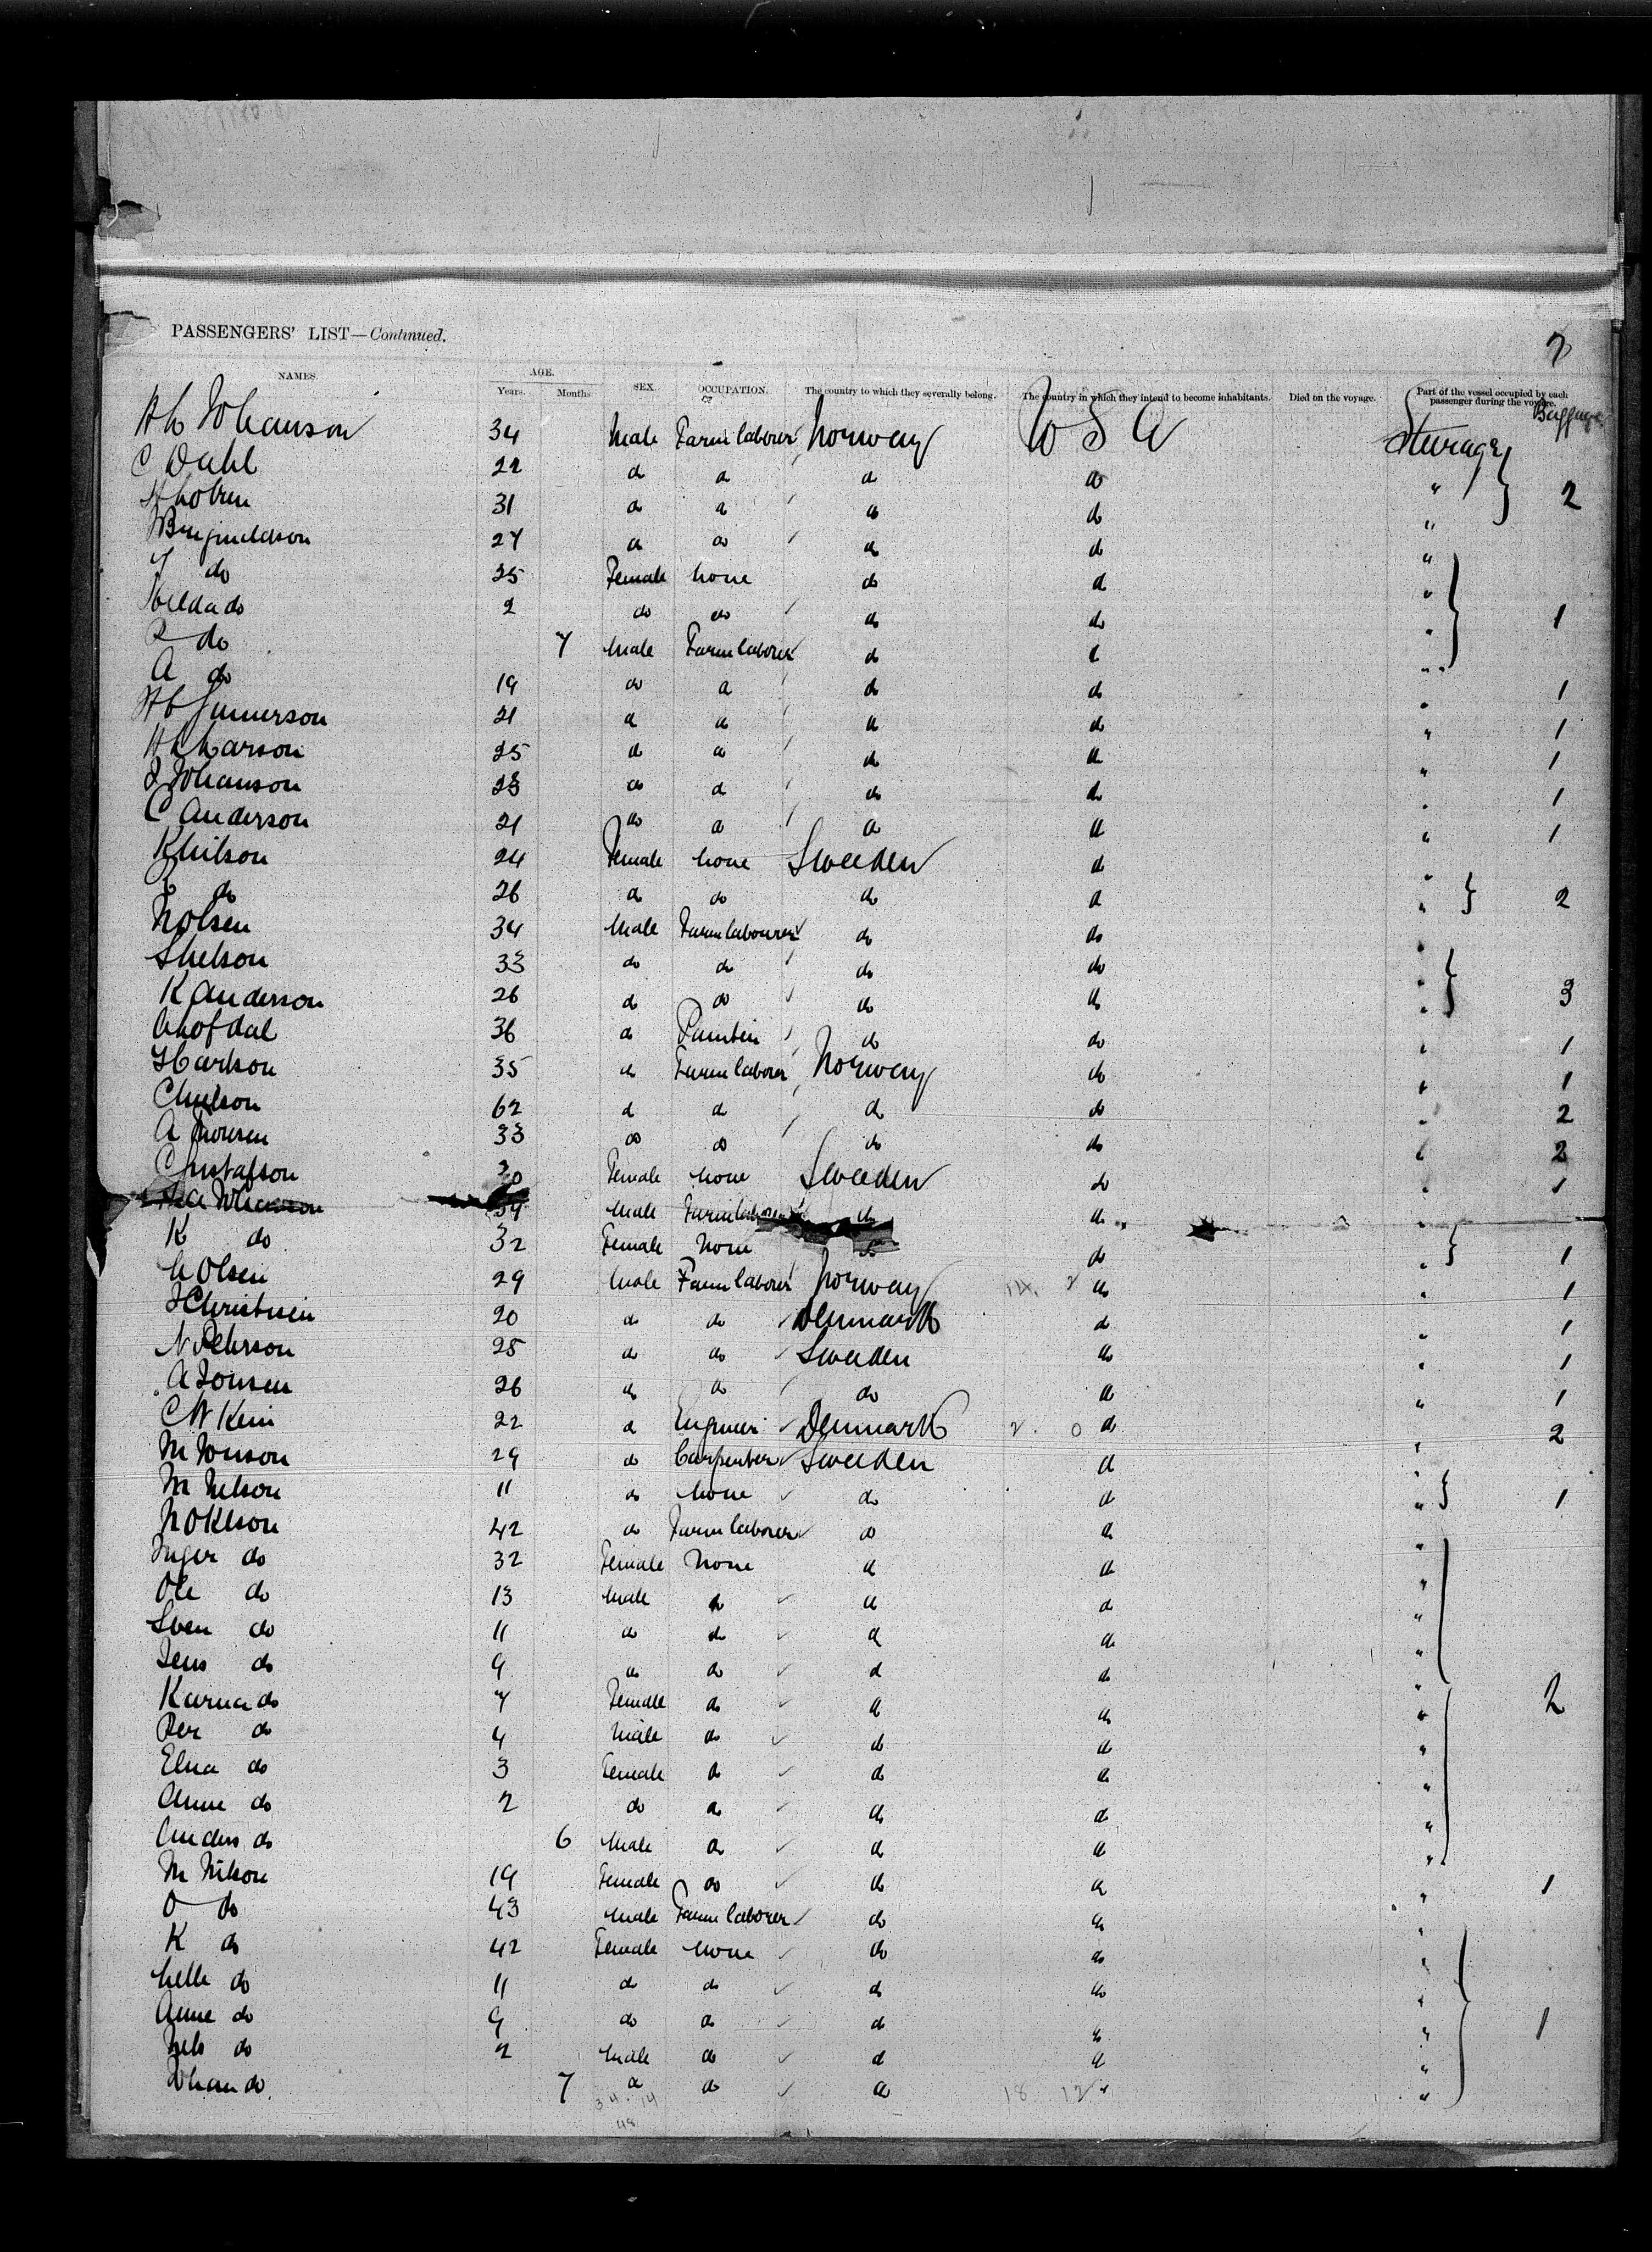 7
PASSENGERS' LIST—Continued.
NAMES. AGE. Years. Months. SEX. OCCUPATION. The country to which they severally belong. The country in which they intend to become inhabitants. Died on the voyage. Part of the vessel occupied by each passenger during the voyage. Baggage
Johanson 34 Male Farm laborer Norway U S A Steerage
C Dahl 22 do do do do " 2
31 do do do do "
27 do do do do "
do 25 Female None do do "
Hilda do 2 do do do do " 1
do 7 Male Farm laborer do do "
A do 19 do do do do " 1
Gunnerson 21 do do do do " 1
Larson 25 do do do do " 1
Johanson 23 do do do do " 1
C Anderson 21 do do do do " 1
K Nilson 24 Female None Sweeden do "
do 26 do do do do " 2
N Olsen 34 Male Farm labourer do do "
S Nelson 33 do do do do "
K Anderson 26 do do do do " 3
36 do do do " 1
35 do Farm laborer Norway do " 1
C Nelson 62 do do do do " 2
A 33 do do do do " 2
C Gustafson Female None Sweeden do " 1
Johanson 34 Male Farm laborer do do "
K do 32 Female None do do " 1
Olsen 29 Male Farm laborer Norway do " 1
20 do do Denmark do " 1
N Pehrson 25 do do Sweeden do " 1
A Jonsen 26 do do do do " 1
22 do Engineer Denmark do " 2
M Jonson 29 do Carpenter Sweeden do "
M Nelson 11 do None do do " 1
N Okeson 42 do Farm laborer do do "
Inger do 32 Female None do do "
Ole do 13 Male do do do "
Sven do 11 do do do do "
Jens do 9 do do do do "
Karna do 7 Female do do do " 2
Per do 4 Male do do do "
Elna do 3 Female do do do "
Anne do 2 do do do do "
Anders do 6 Male do do do "
M Nilson 19 Female do do do " 1
O do 43 Male Farm laborer do do "
K do 42 Female None do do "
do 11 do do do do "
Anne do 9 do do do do " 1
Nels do 2 Male do do do "
Johan do 7 do do do do "
34 14 18 12
48